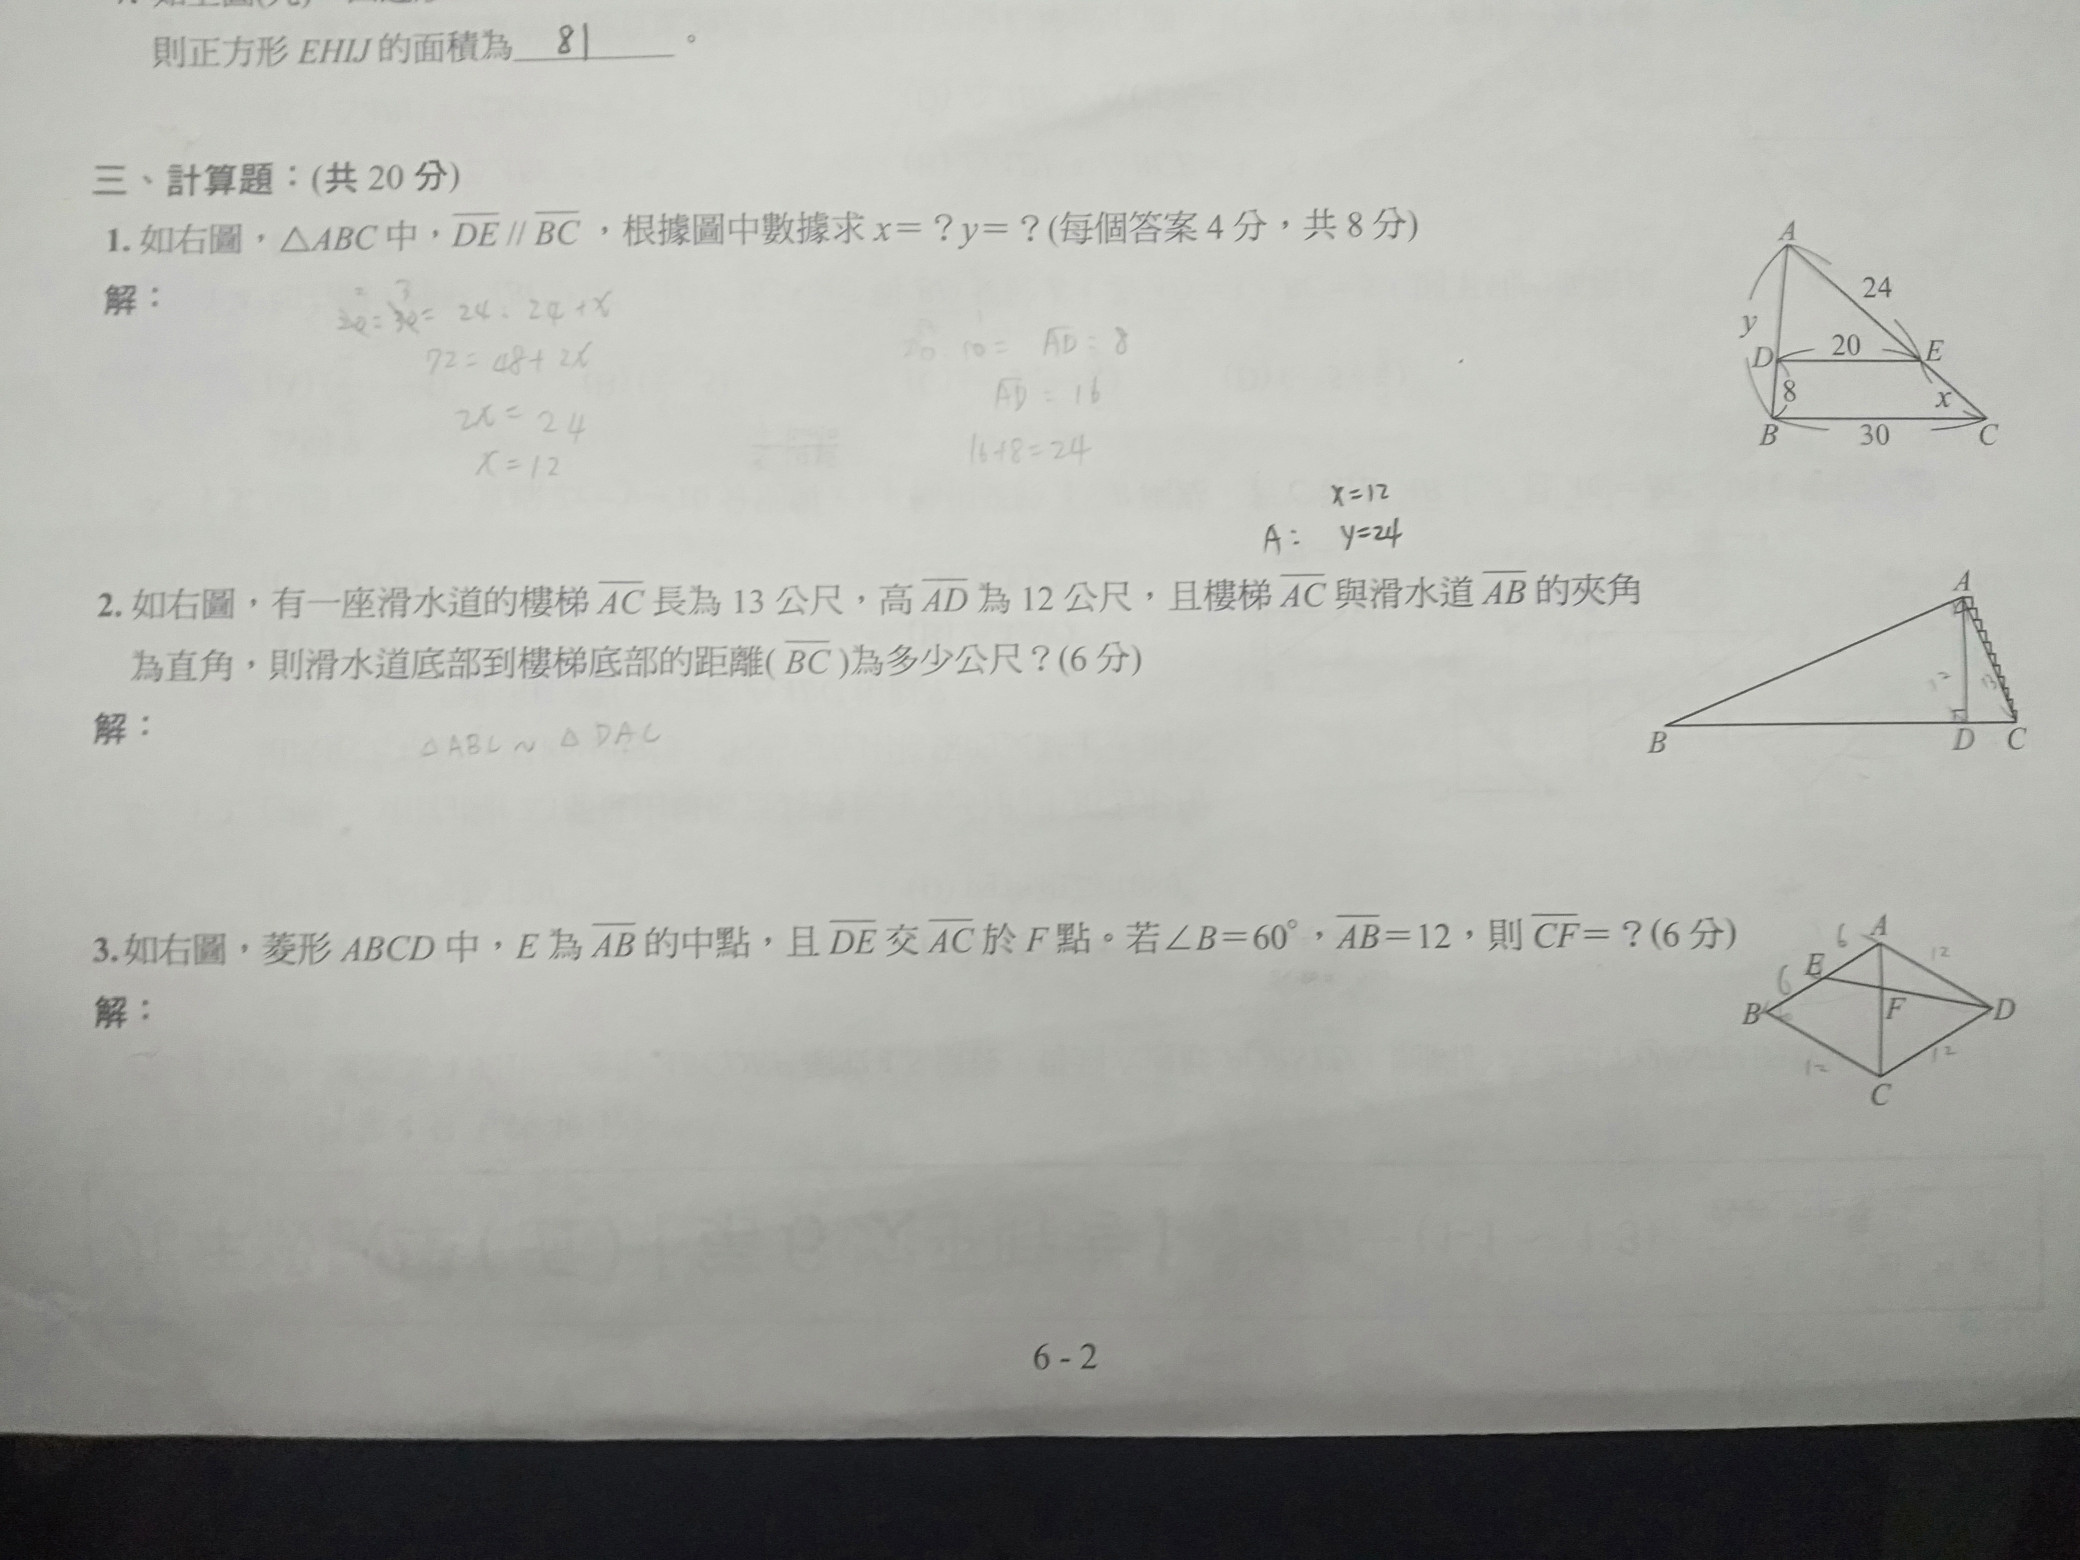 則正方形 EHIJ 的面積為 81 。
三、計算題：(共 20 分)
1. 如右圖，△ABC 中，DE // BC ，根據圖中數據求 x＝？y＝？(每個答案 4 分，共 8 分)
解：
2 3
20 : 30 = 24 : 24 + x
72 = 48 + 2x
2x = 24
x = 12
AD : 8
AD = 16
16+8=24
x=12
A： y=24
A
24
y
D
20
E
8
x
B
30
C
2. 如右圖，有一座滑水道的樓梯 AC 長為 13 公尺，高 AD 為 12 公尺，且樓梯 AC 與滑水道 AB 的夾角
為直角，則滑水道底部到樓梯底部的距離( BC )為多少公尺？(6 分)
解：
△ABC ~ △DAC
A
12 13
B
D C
3. 如右圖，菱形 ABCD 中，E 為 AB 的中點，且 DE 交 AC 於 F 點。若∠B＝60°，AB＝12，則 CF＝？(6 分)
解：
6 A
12
E
6
B
F
D
12
12
C
6 - 2